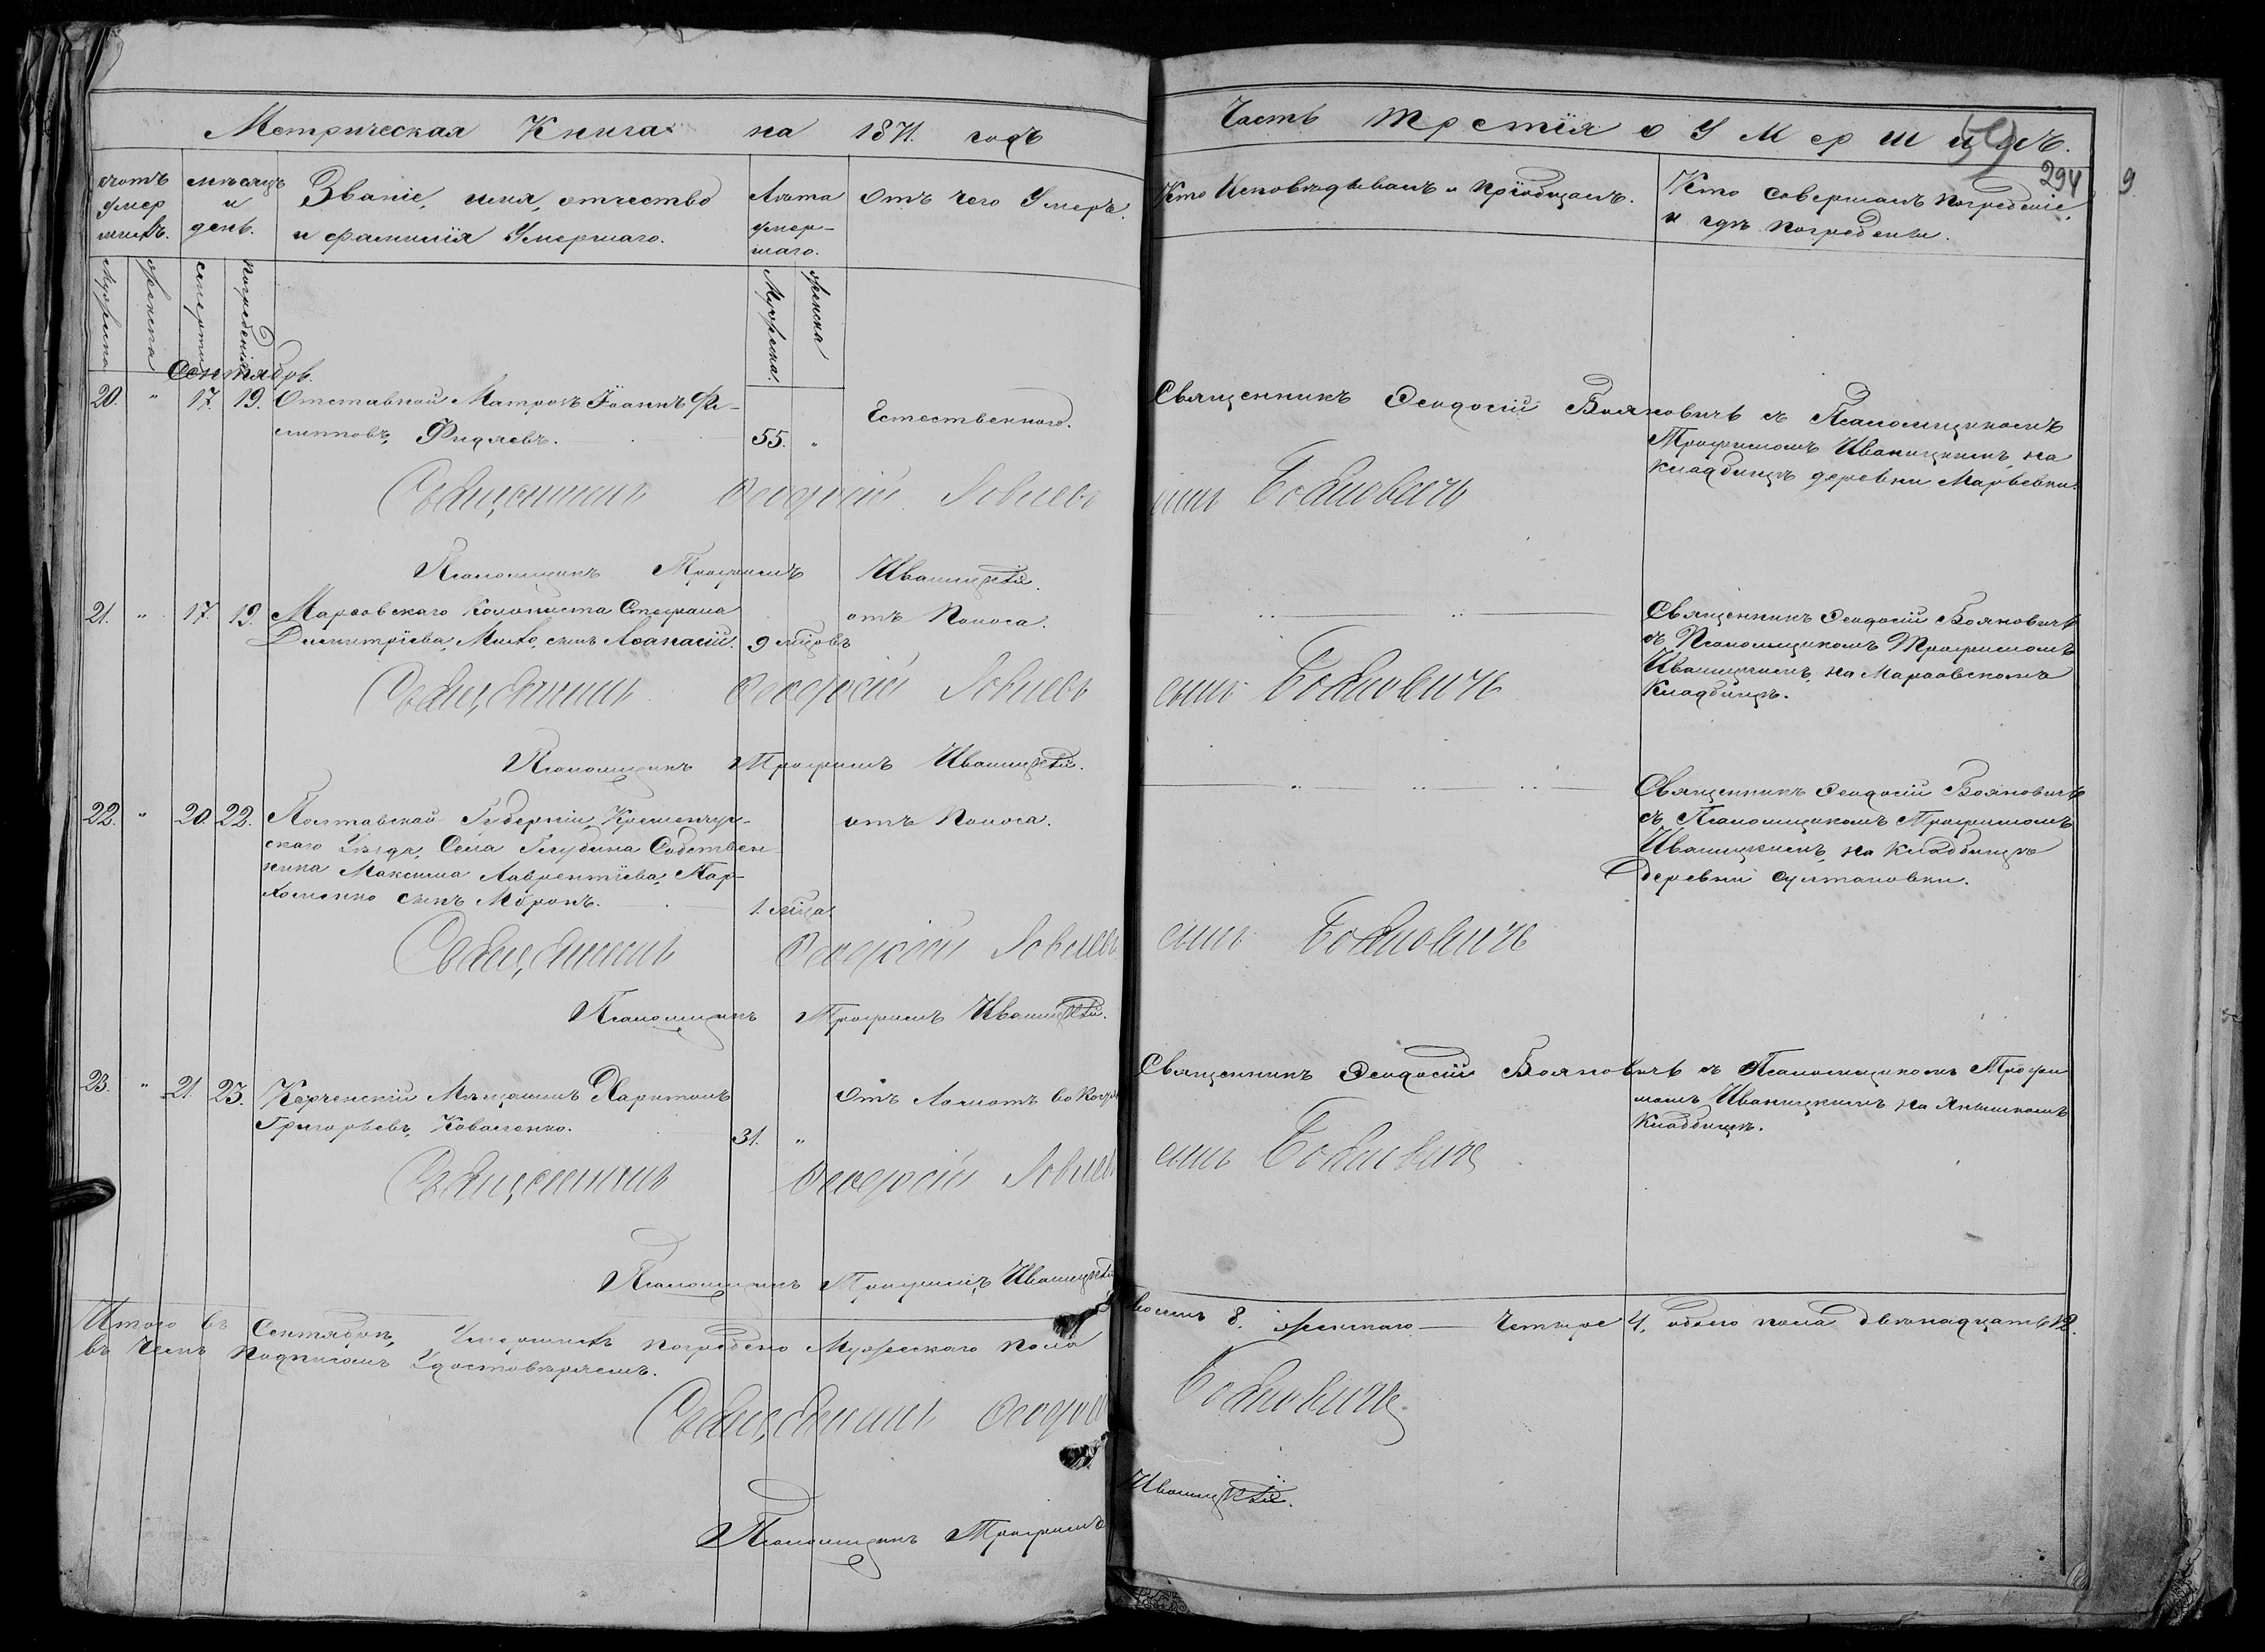 Метрическая Книга на 1871. годъ
Часть третія о Умершихъ.
294
9
счотъ умер шихъ.
мѣсяцъ и день.
Званіе, имя, отчество
и фамилія Умершаго.
Лѣта умер-
шаго.
Отъ чего Умеръ.
Кто Исповѣдывалъ и Пріобщалъ.
Кто совершалъ погребеніе,
и гдѣ погребены.
Мужеска
женска
смерти
погребенія
Мужеска.
женска
Сентябрь.
20. " 17. 19. Отставной Матросъ Іоаннъ Фи-
липповъ, Фидяевъ. 55. "
Естественного.
Священникъ Феодосій Бояновичъ съ Псаломщикомъ
Трофимомъ Иваницкимъ, на
кладбищѣ деревни Марьевки.
Священникъ Феодосій Бояновичъ
Псаломщикъ Трофимъ Иваницкій.
21. " 17. 19. Марфовскаго Колониста Стефана
Димитріева, Милѣо, сынъ Аѳанасій. 9 мѣсцовъ
отъ Поноса.
Священникъ Феодосій Бояновичъ
съ Псаломщикомъ Трофимомъ
Иваницкимъ, на Марфовскомъ
Кладбищѣ.
Священникъ Феодосій Бояновичъ
Псаломщикъ Трофимъ Иваницкій.
22. " 20. 22. Полтавской Губерніи, Кременчуг-
скаго Уѣзда, Села Глубина Собствен-
ника Максима Лаврентіева, Пар-
хоменко сынъ Мѵронъ. 1. мѣца.
отъ Поноса.
Священникъ Феодосій Бояновичъ
съ Псаломщикомъ Трофимомъ
Иваницкимъ, на Кладбищѣ
деревни Султановки.
Священникъ Феодосій Бояновичъ
Псаломщикъ Трофимъ Иваницкій.
23. " 21. 23. Керченскій Мѣщанинъ Харитонъ
Григорьевъ, Коваленко. 31. "
Отъ Ломотъ во
Священникъ Феодосій Бояновичъ съ Псаломщикомъ Трофи
момъ Иваницкимъ на
Кладбищѣ.
Священникъ Феодосій Бояновичъ
Псаломщикъ Трофимъ Иваницкій
Итого въ Сентябрѣ, Умершихъ погребено Мужескаго пола восемь 8. женскаго — Четыре 4, обоего пола двенадцать 12.
въ чемъ подписомъ Удостовѣряемъ.
Священникъ Феодосій Бояновичъ
Псаломщикъ Трофимъ Иваницкій.